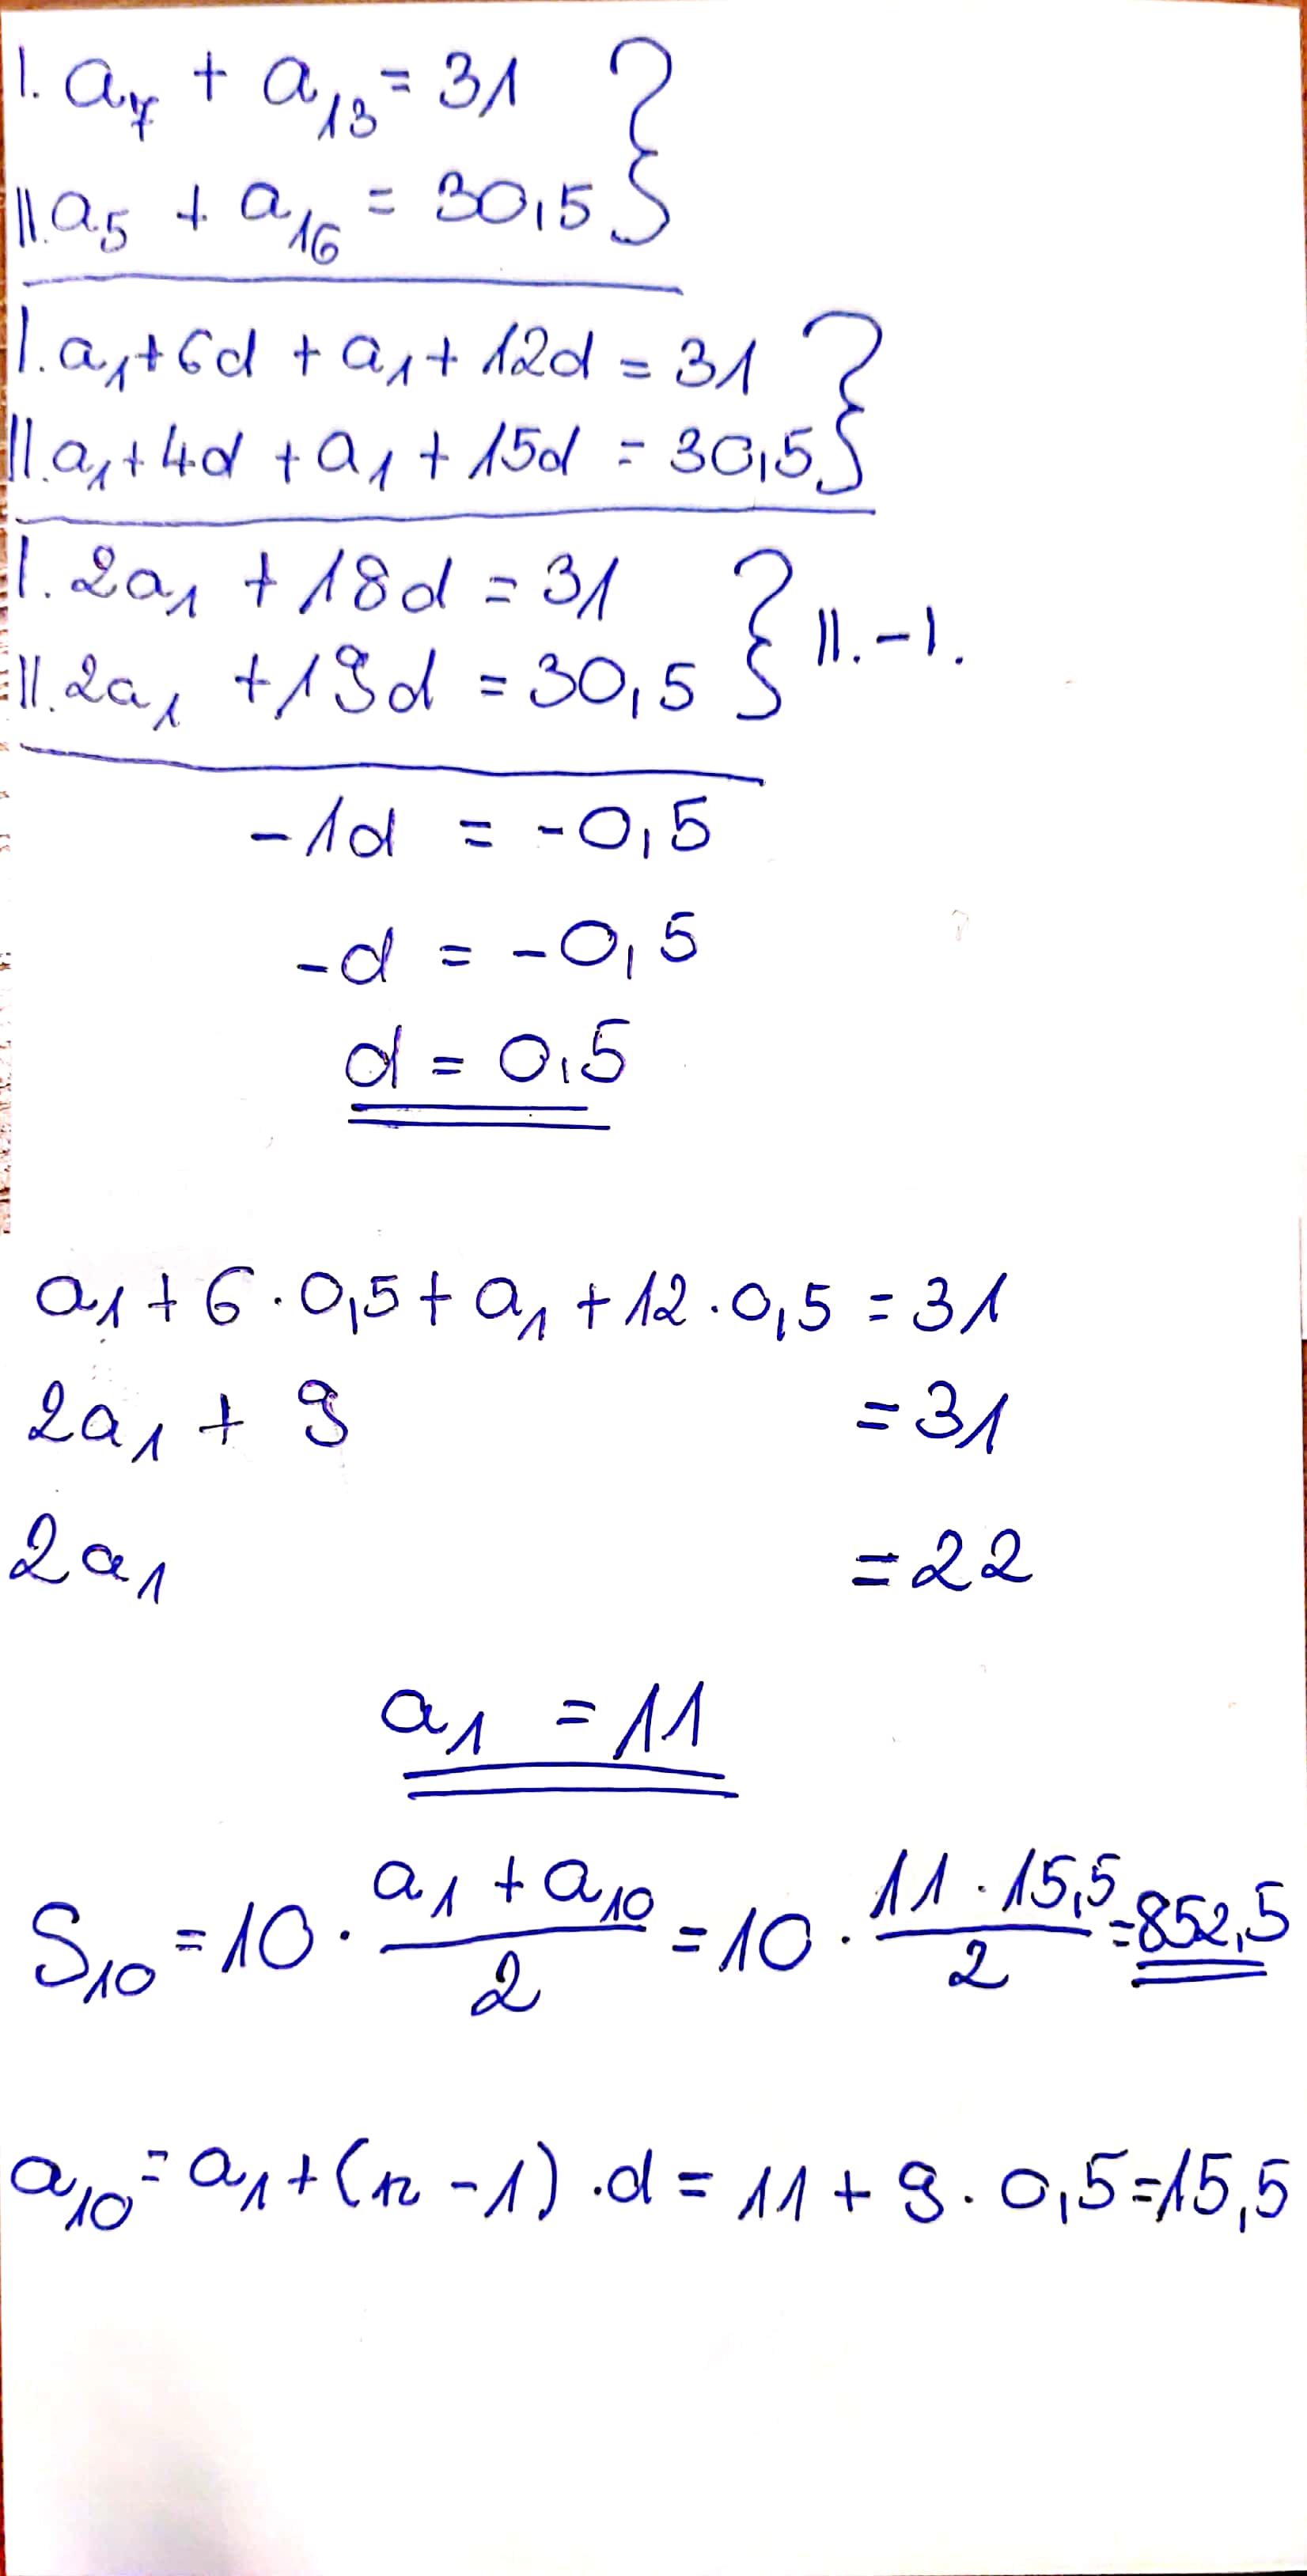 I. a₇ + a₁₃ = 31 }
II. a₅ + a₁₆ = 30,5 }
I. a₁ + 6d + a₁ + 12d = 31 }
II. a₁ + 4d + a₁ + 15d = 30,5 }
I. 2a₁ + 18d = 31 }
II. 2a₁ + 19d = 30,5 } II. - I.
-1d = -0,5
-d = -0,5
d = 0,5
a₁ + 6 · 0,5 + a₁ + 12 · 0,5 = 31
2a₁ + 9 = 31
2a₁ = 22
a₁ = 11
S₁₀ = 10 · (a₁ + a₁₀)/2 = 10 · (11 · 15,5)/2 = 852,5
a₁₀ = a₁ + (n - 1) · d = 11 + 9 · 0,5 = 15,5